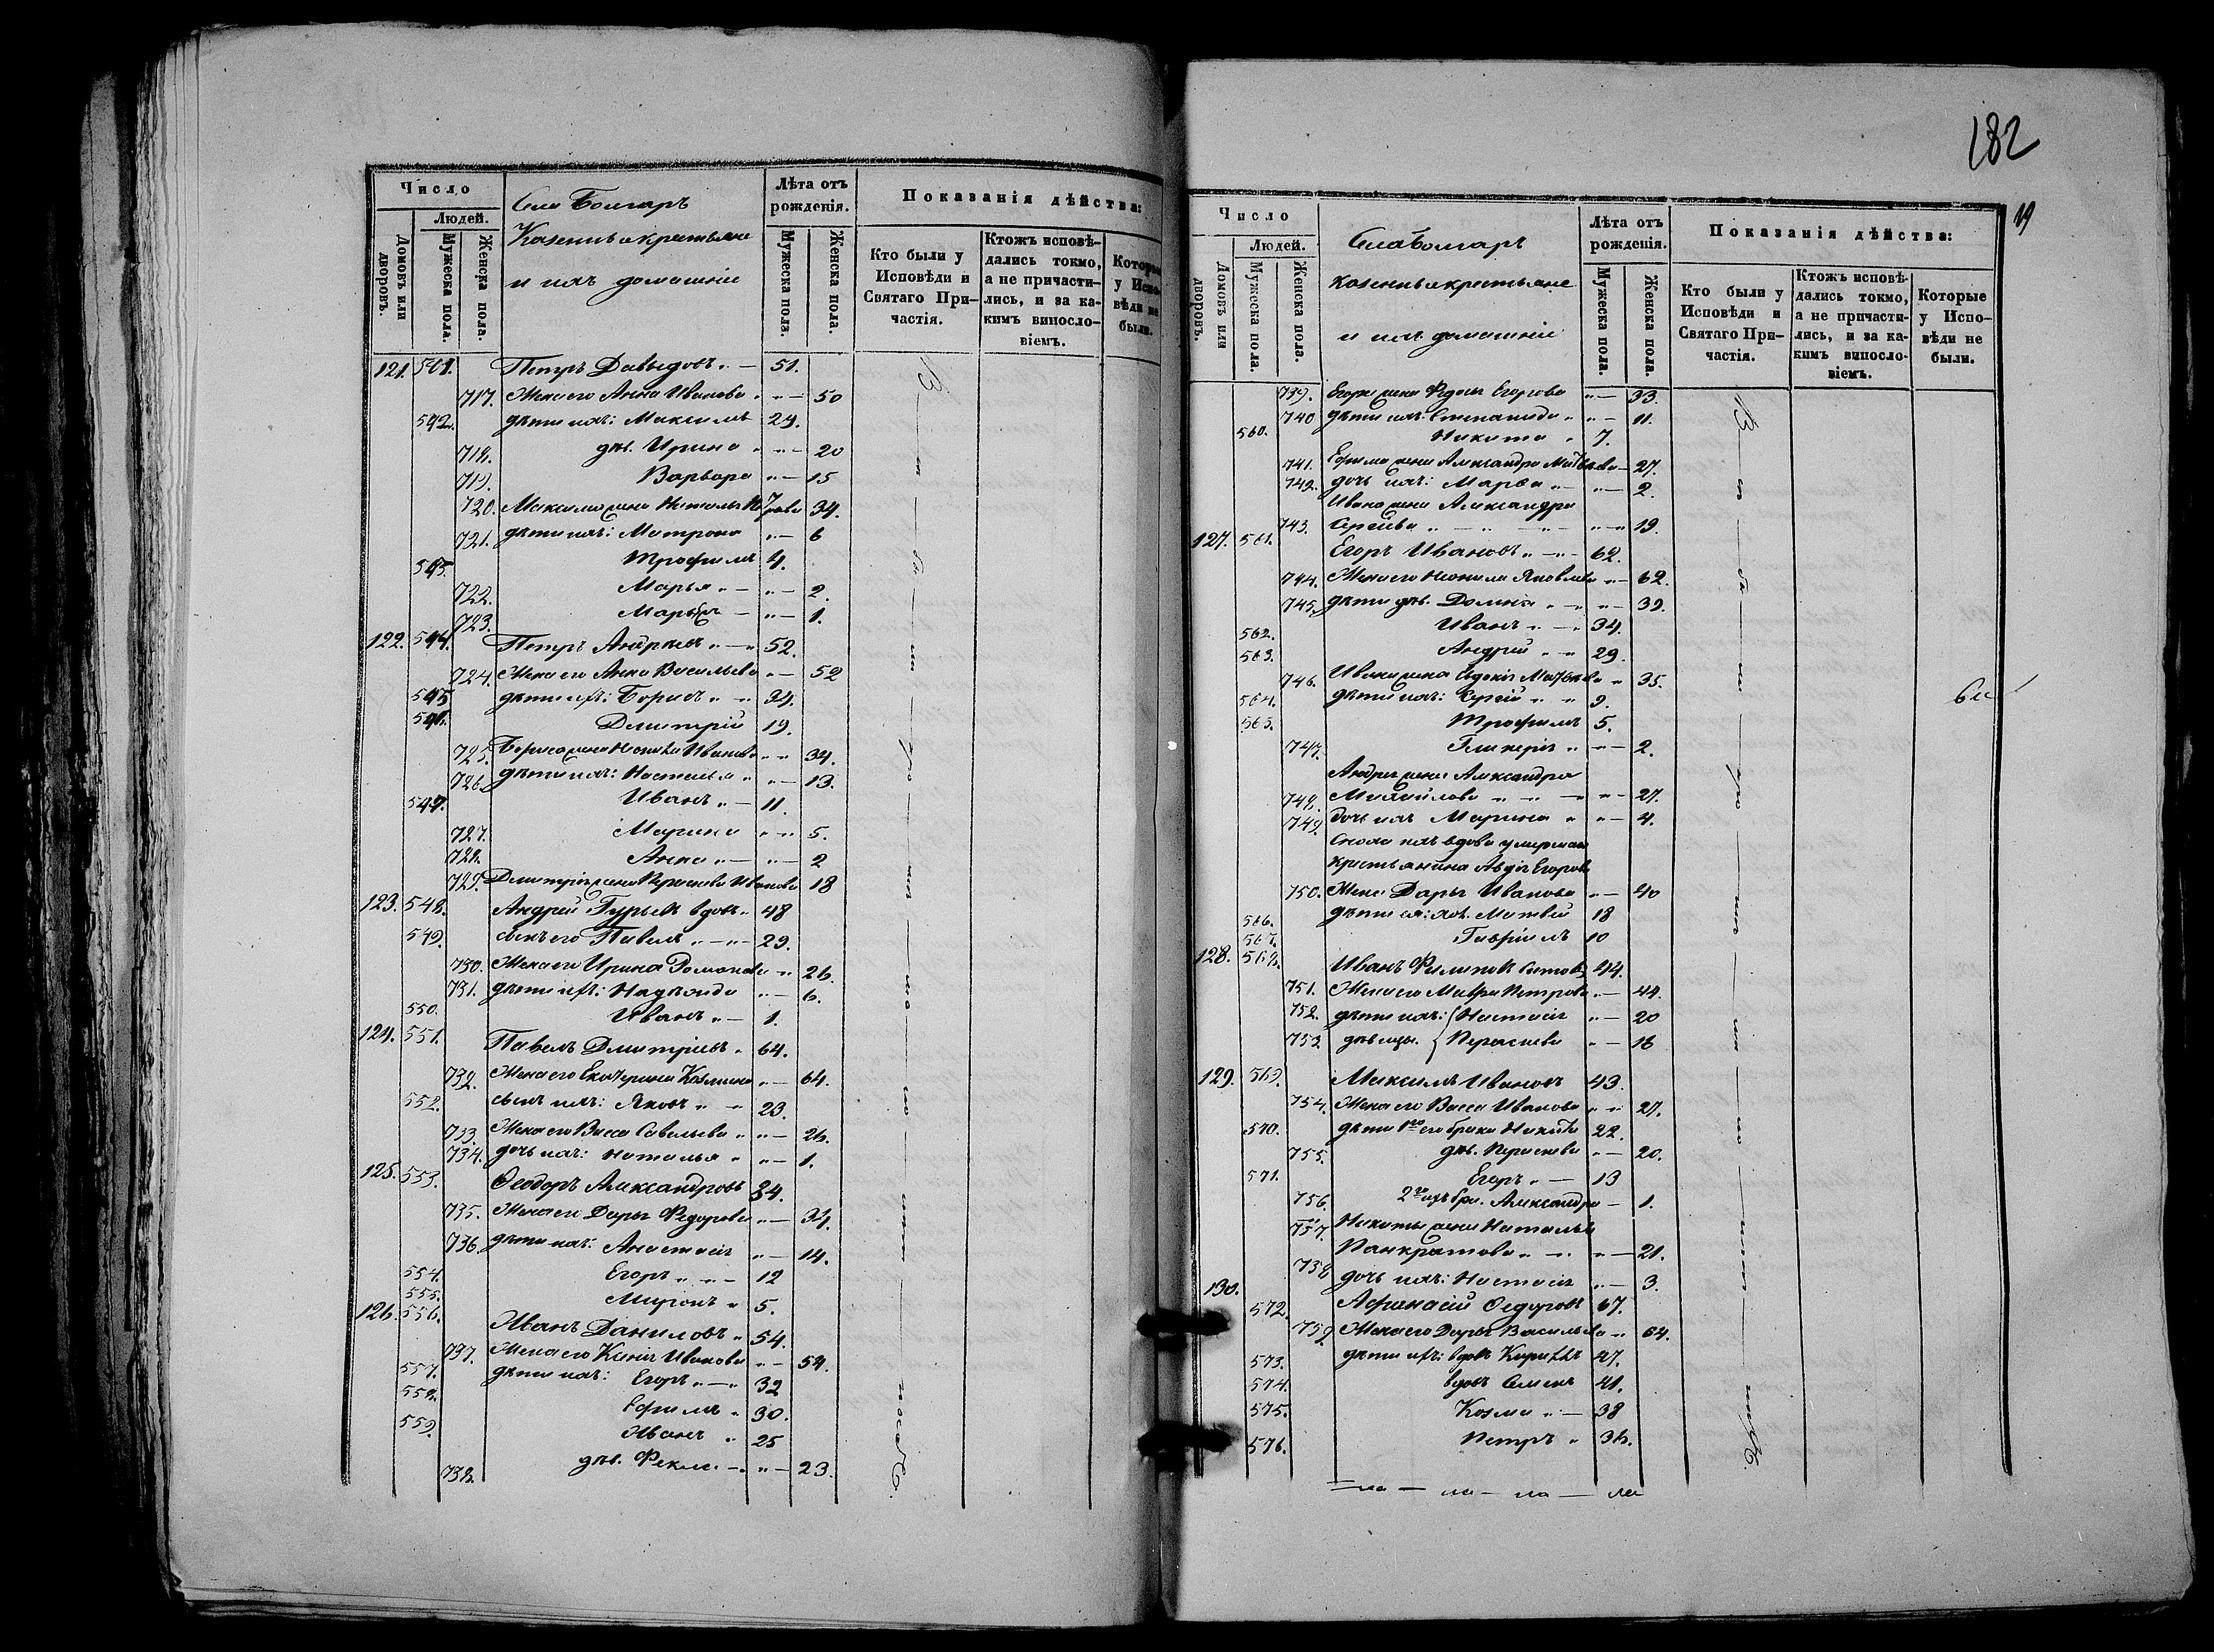 Число
Людей.
Домовъ или дворовъ.
Мужеска пола.
Женска пола.
Села Болгаръ
Казенные крестьяне
и ихъ домашніе
Лѣта отъ рожденія.
Мужеска пола.
Женска пола.
Показанія дѣйства:
Кто были у Исповѣди и Святаго При-
частія.
Ктожъ исповѣ-
дались токмо,
а не причасти-
лись, и за ка-
кимъ виносло-
віемъ.
Которые
у Испо-
вѣди не
были.
121. 541. Петръ Давыдовъ 51.
717. Жена его Анна Иванова 50
542. дѣти ихъ: Максимъ 29.
718. дѣв. Ирина 20
719. Варвара 15
720. Максима жена Наталья 34.
721. дѣти ихъ: Матрона 6
543. Трофимъ 4.
722. Марья 2.
723. 1.
122. 544. Петръ Андреевъ 52.
724. Жена его Анна Васильева 52
545 дѣти ихъ: Борисъ 34.
546. Дмитрій 19.
725. Бориса жена Иванова 34.
726. дѣти ихъ: Настасья 13.
547. Иванъ 11.
727. Марина 5.
728. Анна 2
729. Дмитрія жена Парасковья Иванова 18
123. 548. Андрей Гурьевъ вдовъ 48
549. сынъ его Павелъ 29.
730. Жена его Ирина Романова 26.
731. дѣти ихъ: Надежда 6.
550. Иванъ 1.
124. 551. Павелъ Дмитріевъ 64.
732. Жена его Екатерина Козмина 64.
552. сынъ ихъ: Яковъ 23.
733. Жена его Васса Савельева 26.
734. дочь ихъ: Наталья 1.
125. 553. Ѳеодоръ Александровъ 34.
735. Жена его Дарья Федорова 34.
736. дѣти ихъ: Анастасія 14.
554. Егоръ 12
555. Миронъ 5.
126. 556. Иванъ Даниловъ 54.
737. Жена его Ксенія Иванова 54.
557. дѣти ихъ: Егоръ 32
558. Ефимъ 30.
559. Иванъ 25
738. дѣв. Фекла 23.
182
19
Число
Людей.
Домовъ или дворовъ.
Мужеска пола.
Женска пола.
Села Болгаръ
казенные крестьяне
и ихъ домашніе
Лѣта отъ рожденія.
Мужеска пола.
Женска пола.
Показанія дѣйства:
Кто были у
Исповѣди и
Святаго При-
частія.
Ктожъ исповѣ-
дались токмо,
а не причасти-
лись, и за ка-
кимъ виносло-
віемъ.
Которые
у Испо-
вѣди не
были.
739. Егора жена Федосья Егорова 33.
740 дѣти ихъ: Степанида 11.
560. Никита 7.
741. Ефима жена Александра Матвѣева 27.
742. дочь ихъ: Марѳа 2.
Ивана жена Александра
743. Сергѣева 19.
127. 561. Егоръ Ивановъ 62.
744. Жена его Неонила Яковлева 62.
745. дѣти дѣв. Домна 39.
562. Иванъ 34.
563. Андрей 29.
746. Ивана жена Евдокія Матвѣева 35.
564. дѣти ихъ: Сергій 9.
565. Трофимъ 5.
747. Гликерія 2.
Андрея жена Александра
748. Михайлова 27.
749. дочь ихъ Марина 4.
Сноха ихъ вдова умершаго
крестьянина Авдія Егорова
750. Жена Дарья Иванова 40
566. дѣти ея: хол. Матвей 18
567. Гавріилъ 10
128. 568. Иванъ Филиповъ 44.
751. Жена его Мавра Петрова 44.
752. дѣти ихъ: Настасія 20
753. дѣвицы. Параскева 16
129. 569. Максимъ Ивановъ 43.
754. Жена его Васса Иванова 27.
570. дѣти 1го его брака Никита 22.
755. дѣв. Параскева 20.
571. Егоръ 13
756. 2го бра. Александра 1.
757. Никиты жена Наталья
Панкратова 21.
758 дочь ихъ: Настасія 3.
130. 572. Афанасій Ѳедоровъ 67.
759 Жена его Дарья Васильева 64.
573. дѣти ихъ: вдовъ 47.
574. вдовъ Семенъ 41.
575. Козма 38
576. Петръ 36.